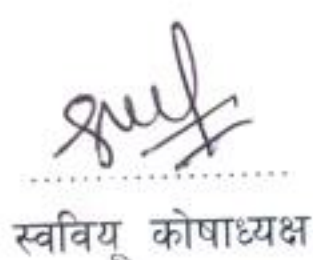 स्ववियू कोषाध्यक्ष